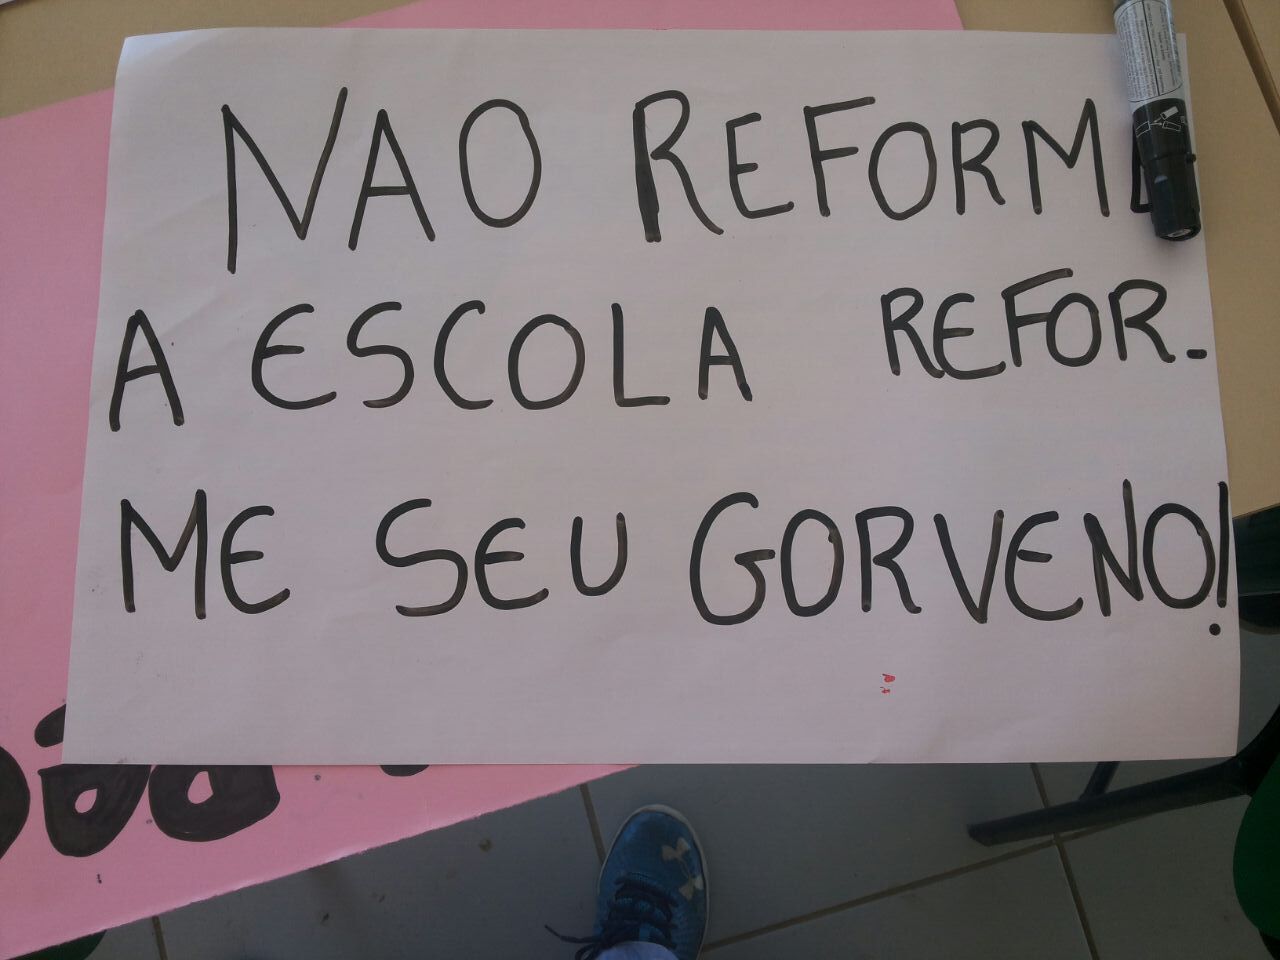 NAO REFORM
A ESCOLA REFOR-
ME SEU GORVENO!